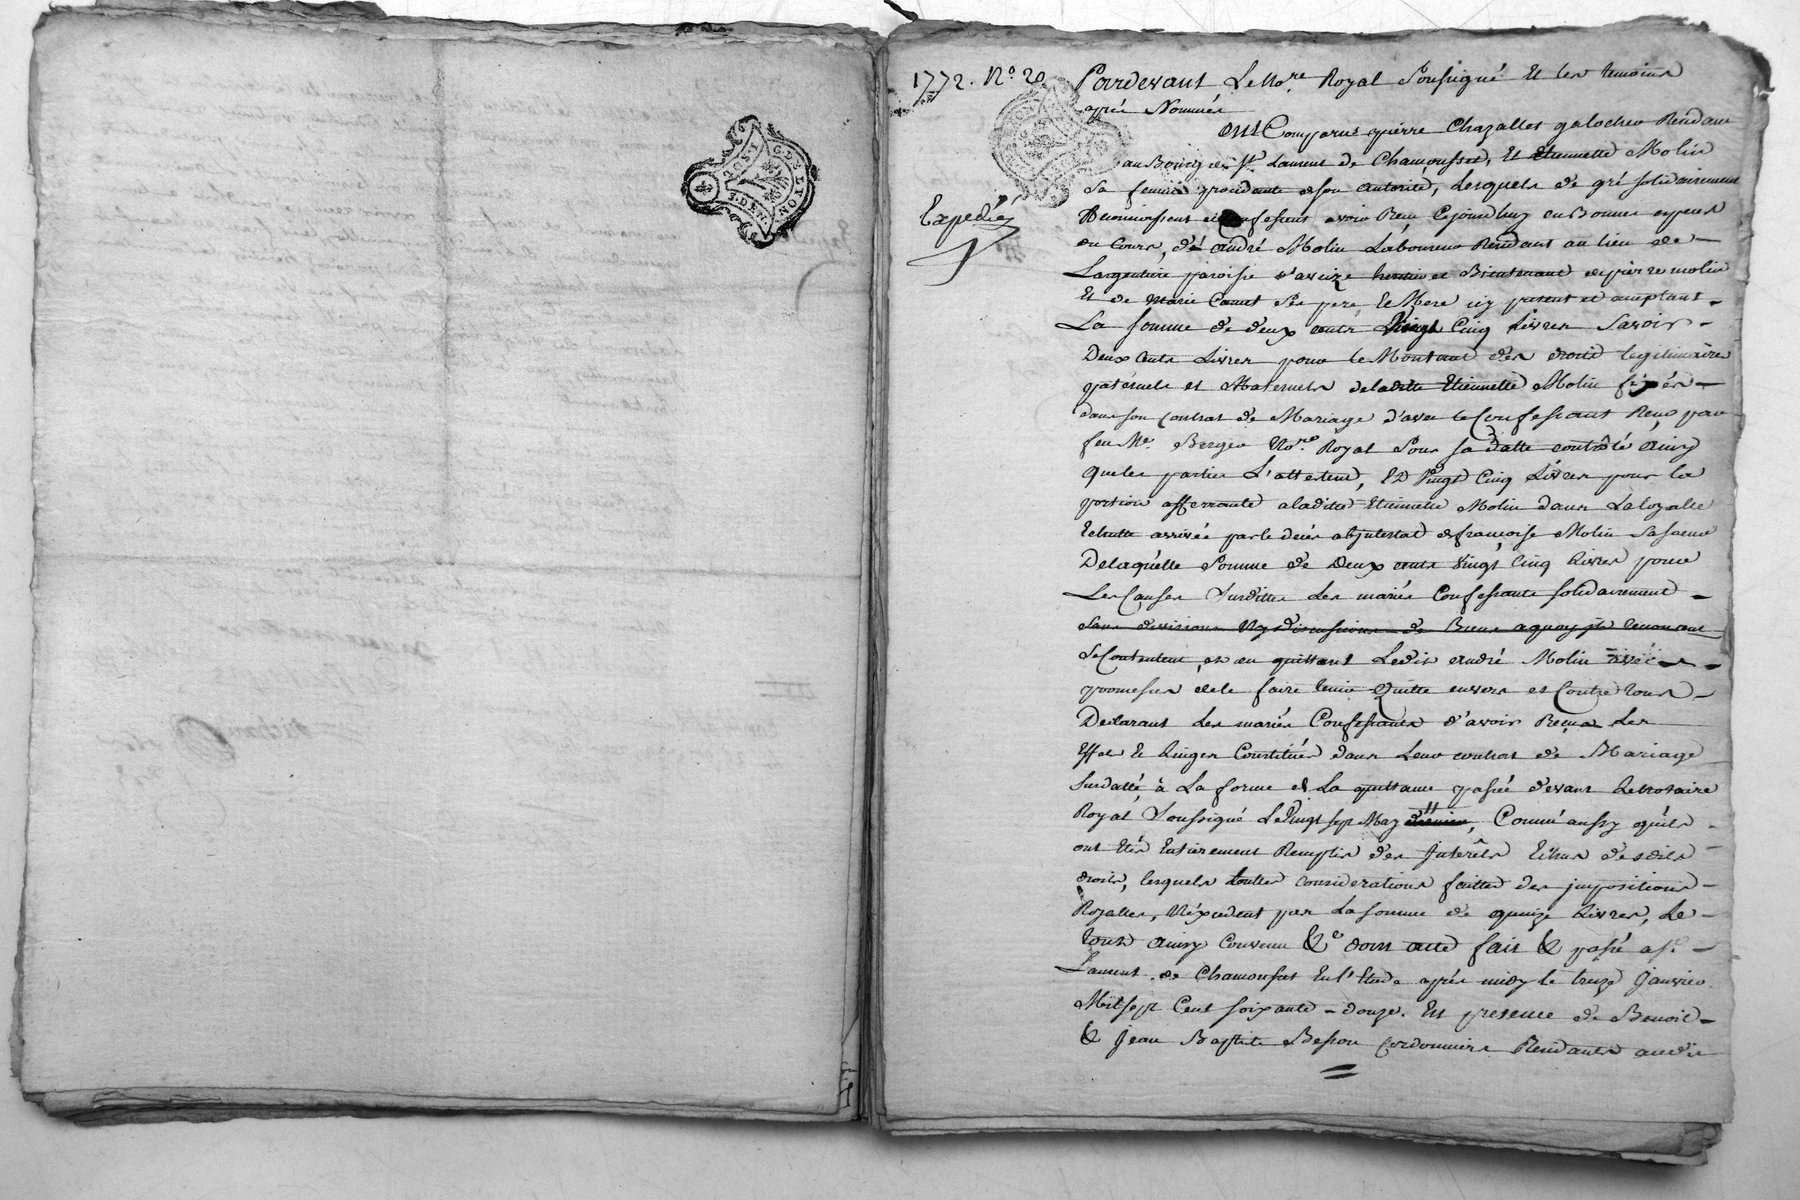 1772. N.º 20
Expediéz
Pardevant Le No.re Royal Soussigné Et les temoins
après Nommés
ont Comparus pierre Chazalles galocher Residant
au Bourg de St Laurent de Chamousset, Et Etiennette Molin
Sa femme procedante de son autorité, Lesquels de gré solidairement
Reconnoissent et Confessent avoir Reçu Cejourdhuy en Bonnes especes
du Cours, de andré Molin Laboureur Residant au lieu de
Largentiere paroisse d'aveize heritier et Bientenant de pierre molin
Et de Marie Canet Ses pere, Et Mere icy present et acceptant
La somme de deux cents Vingt Cinq Livres Savoir
Deux Cents Livres pour le Montant des droits legitimaires
paternels et Maternels de laditte Etiennette Molin fixés
dans son Contrat de Mariage d'avec le Confessant Reçu par
feu Me. Berger No.re Royal Sous sa datte contrôlé ainsy
que les parties L'attestent, Et Vingt Cinq Livres pour la
portion afferante a laditte Etiennette Molin dans La loyalle
Echutte arrivée par le decès abjntestat de francoise Molin Sa soeur
De laquelle Somme de Deux cents Vingt Cinq Livres pour
Les Causes Susdittes Les mariés Confessants solidairement
sans division Ny discussion de Biens a quoy ils renoncent
Se Contentent, et en quittent Ledit andré Molin avec
promesse de le faire tenir Quitte envers et Contre tous
Declarant Les mariés Confessants d'avoir Reçu Les
Effet & Linges Constitués dans Leur contrat de Mariage
Susdatté, à La forme de La quittance passée devant Le Notaire
Royal Soussigné Le Vingt sept May dernier, Comme aussy qu'ils
ont Etés Entierement Remplis des Jnterêts Echus desdits
droits, lesquels toutte considerations faittes des jmpositions
Royalles, N'éxcedent pas La somme de quinze Livres, Le
tout ainsy Convenu &.e dont acte fait & passé a St
Laurent de Chamousset En l'Etude après midy le treize Janvier
Mil sept Cent soixante-douze. En presence de Benoit
& Jean Baptiste Besson Cordonniers Residants audit